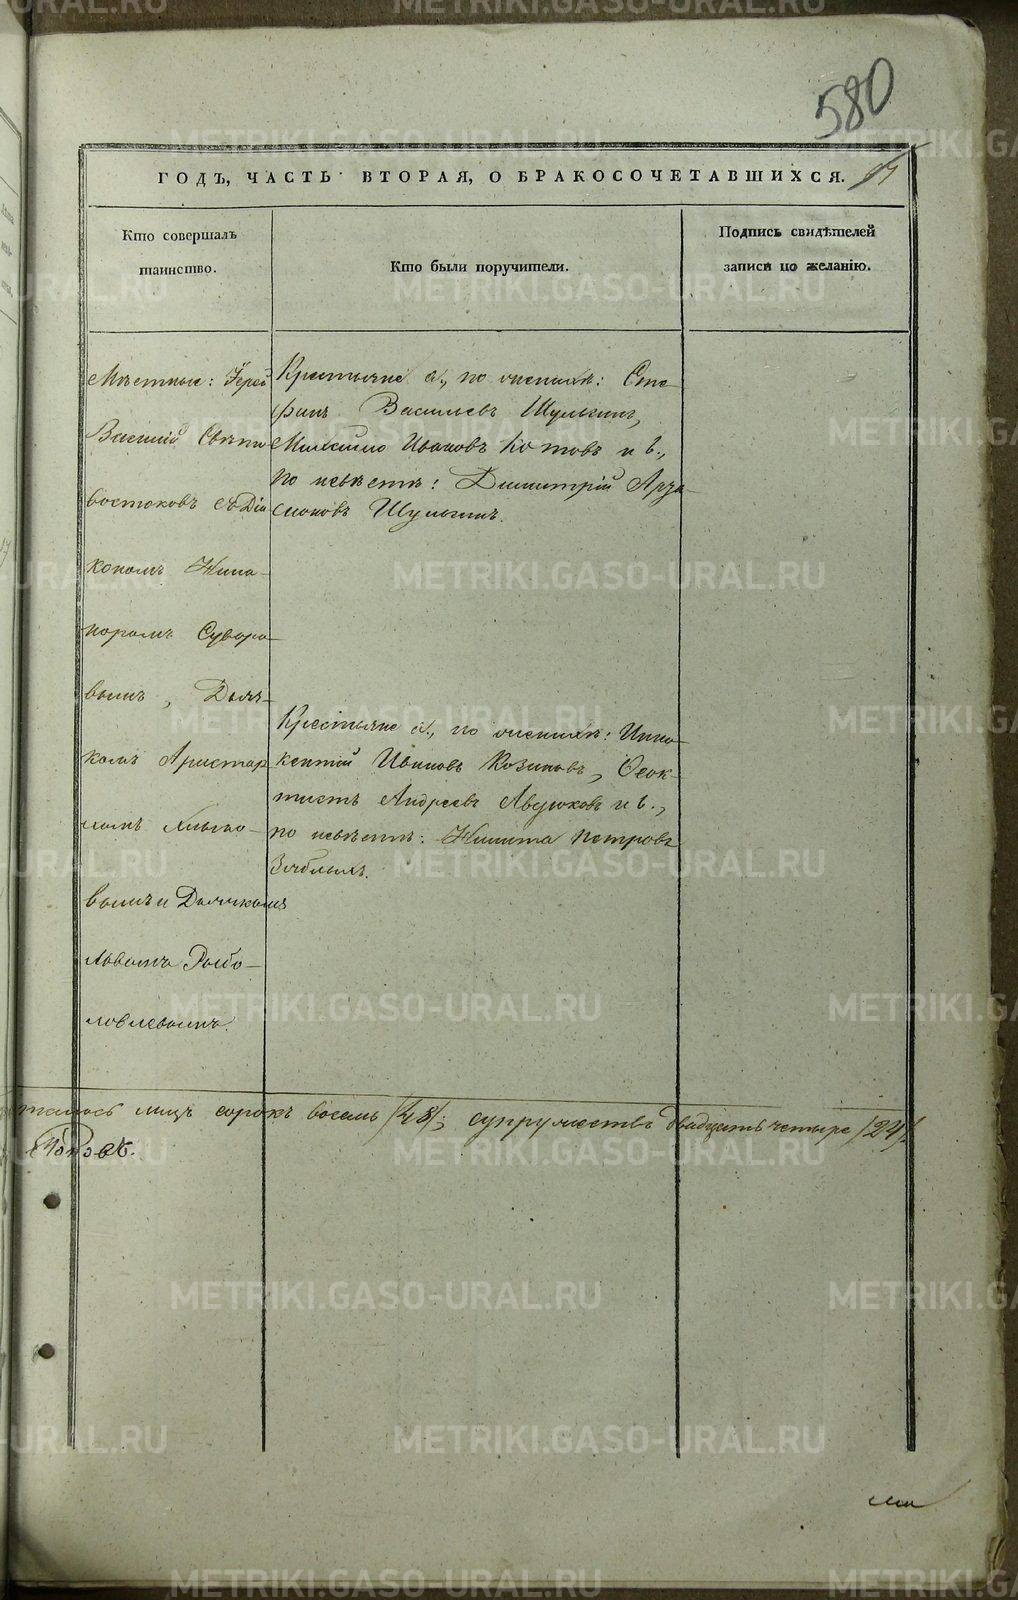 580
ГОДЪ, ЧАСТЬ ВТОРАЯ, О БРАКОСОЧЕТАВШИХСЯ.
Кто совершалъ
таинство.
Кто были поручители.
Подпись свидѣтелей
записи по желанію.
Мѣстные: Іерей
Василій Свѣто
востоковъ съ Діа
кономъ Ника
норомъ Суворо
вымъ, Дьяч-
комъ Аристар
хомъ
вымъ и Дьячкомъ
Львомъ Рыбо-
ловлевымъ.
Крестьяне а., по женихѣ: Сте-
фанъ Васильевъ Шульгинъ,
Михаило Ивановъ Котовъ и б.,
по невѣстѣ: Димитрій Арта-
моновъ Шульгинъ.
Крестьяне а., по женихѣ: Инно-
кентій Ивановъ Козиновъ, Ѳеок-
тистъ Андреевъ Авдюковъ и б.,
по невѣстѣ: Никита Петровъ
Зяблыхъ.
талось лицъ сорокъ восемь /48/; супружествъ двадцать четыре /24/.
Поповъ.
METRIKI.GASO-URAL.RU